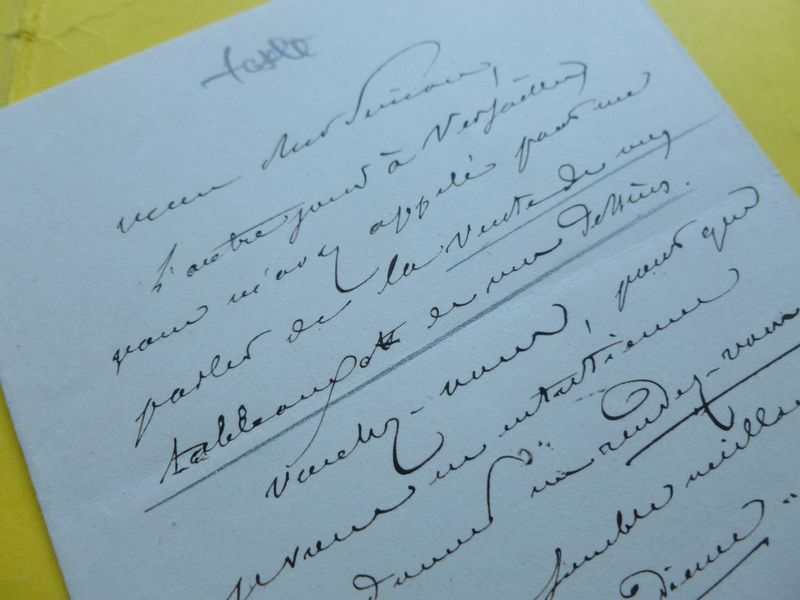 mon cher Simon,
L'autre jour à Versailles
vous m'avez appelé pour me
parler de la vente de mes
tableaux et de mes dessins.
Voulez-vous, pour que
je vous en entretienne
donner un rendez-vous
semble